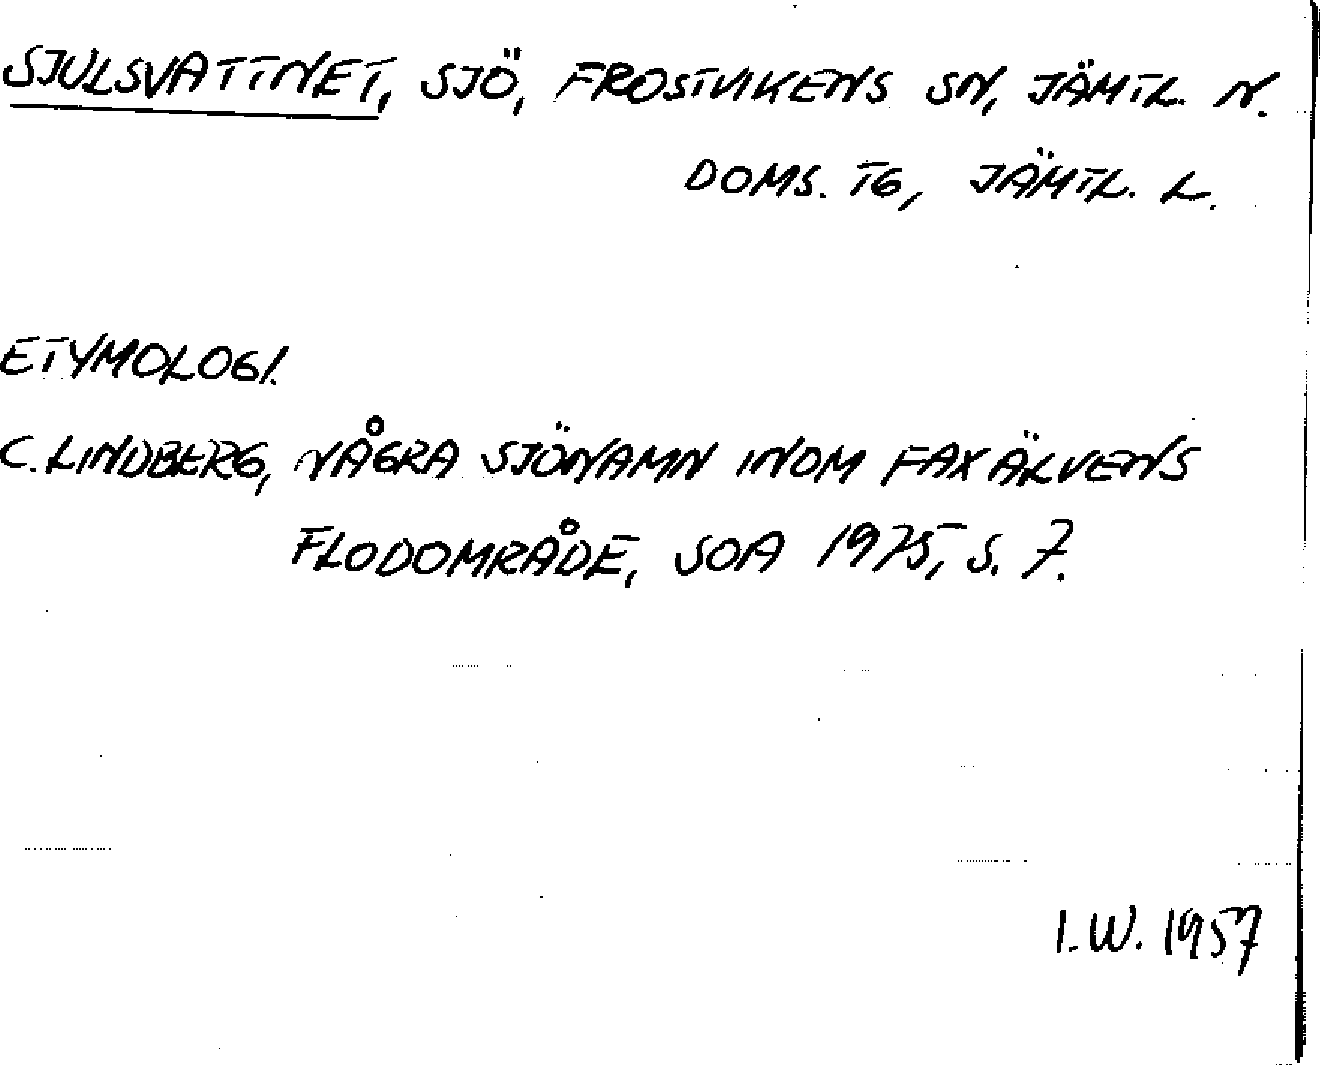 SJULSVATTNET, SJÖ, FROSTVIKENS SN, JÄMTL. N.
DOMS. TG, JÄMTL. L.
ETYMOLOGI.
C. LINDBERG, NÅGRA SJÖNAMN INOM FAXÄLVENS
FLODOMRÅDE, SOA 1975, S. 7.
I.W. 1957